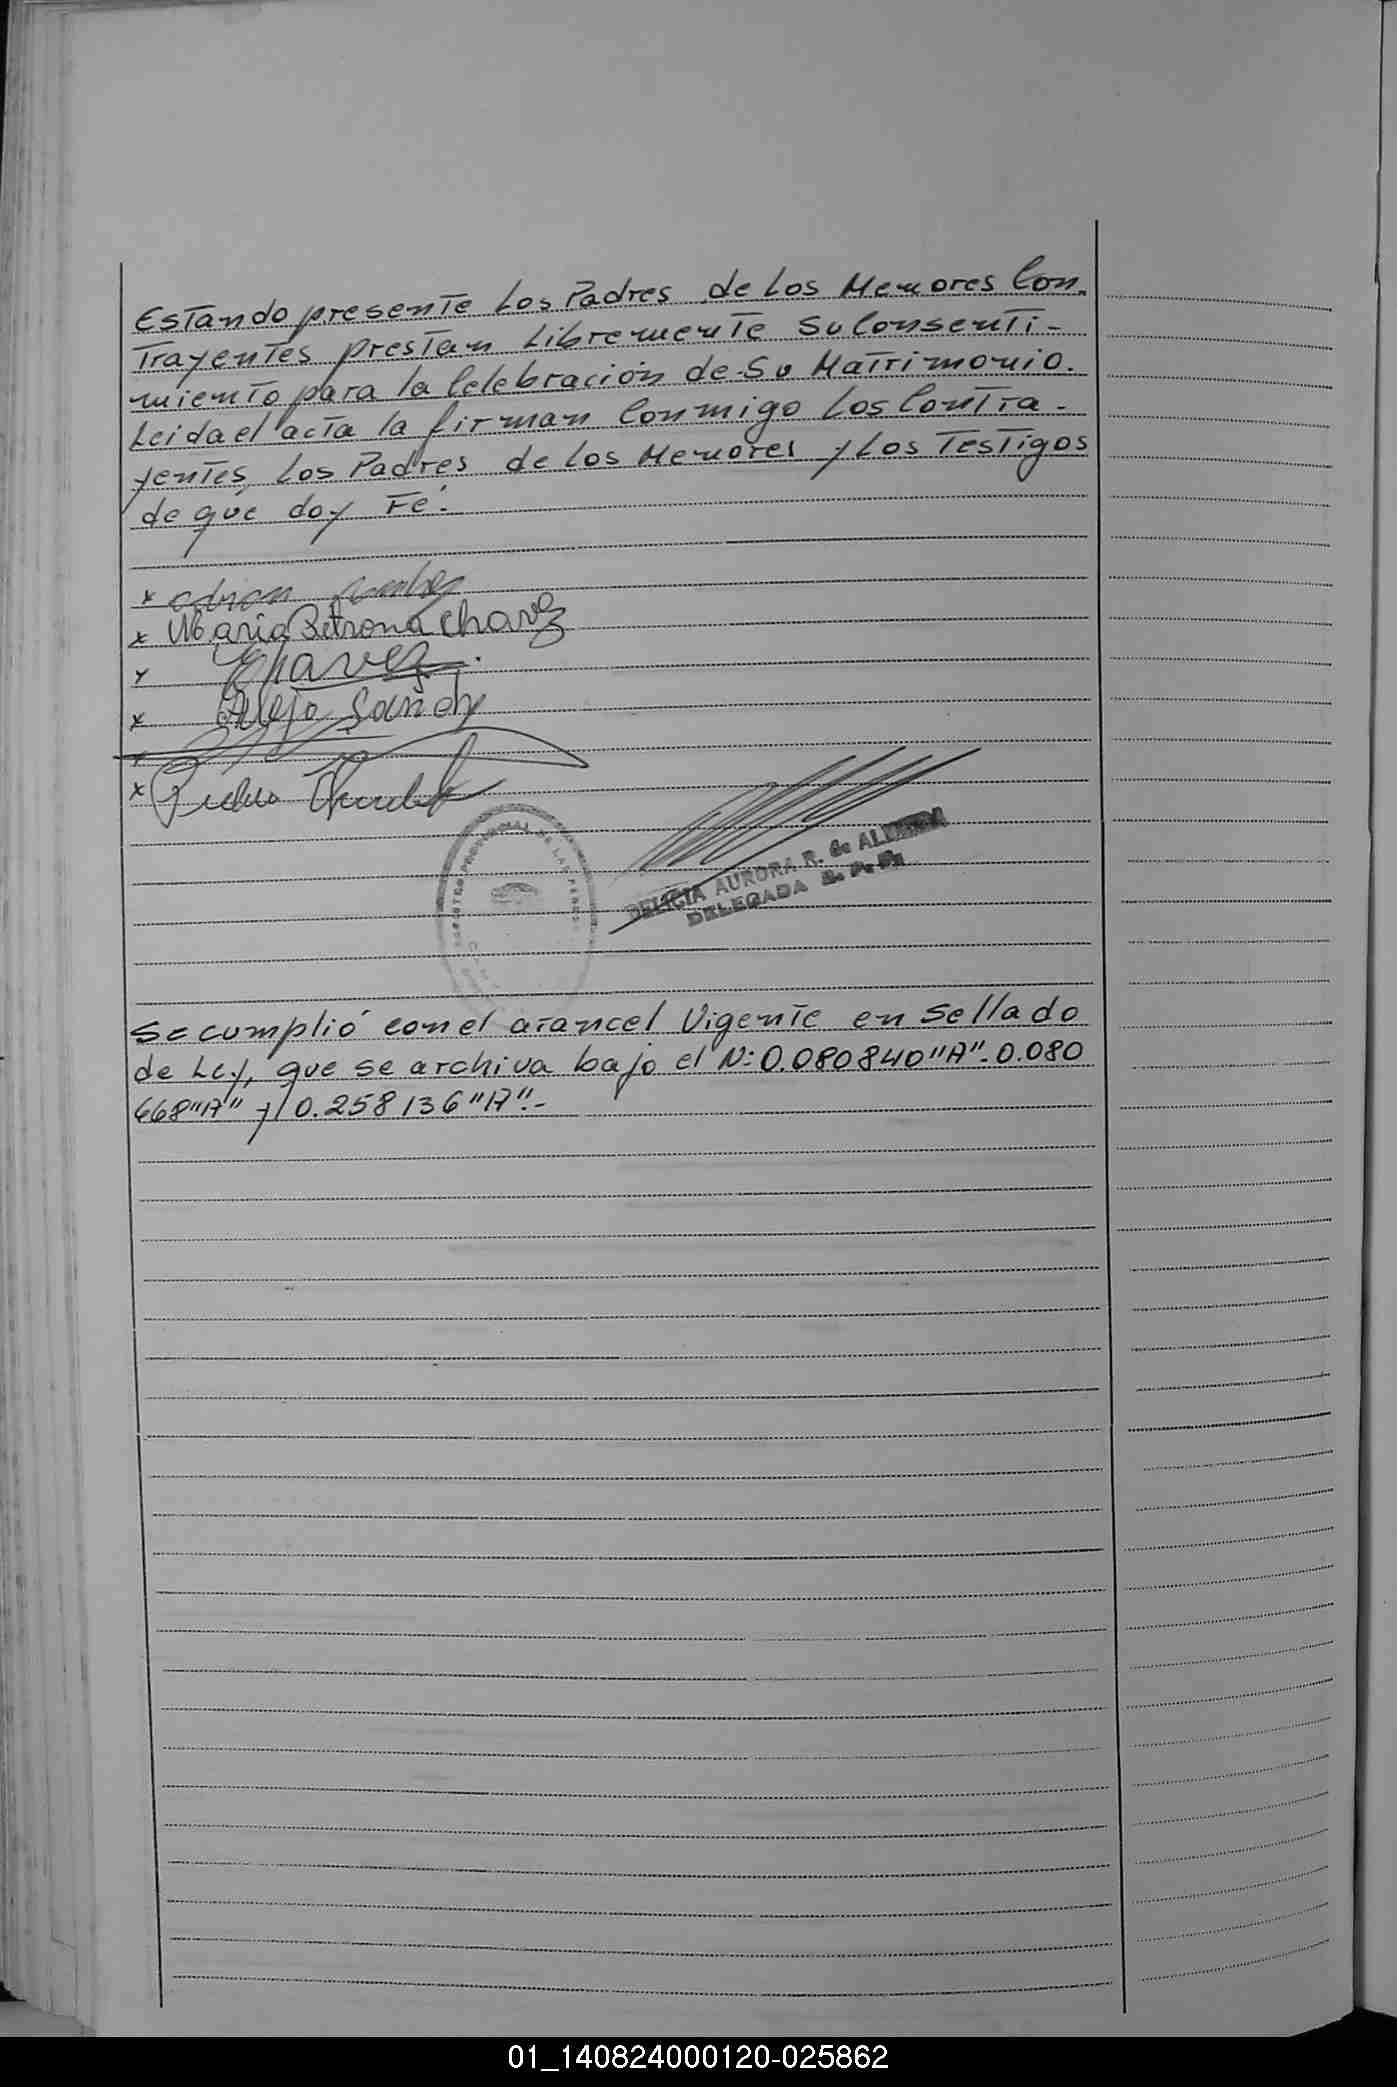 Estando presente Los Padres de Los Menores Con_
Trayentes prestan Libremente Su Consenti-
miento para la Celebración de Su Matrimonio.
Leida el acta la firman Conmigo Los Contra-
yentes, Los Padres de Los Menores y Los Testigos
de que doy Fé.
x
x Maria Petrona Chavez
x Chavez.
x Alejo Sanch
x
x Pedro
REGISTRO PROVINCIAL DE LAS PERSONAS
DELICIA AURORA R. de ALMEIDA
DELEGADA R. P. P.
Se cumplió con el arancel Vigente en Sellado
de Ley, que se archiva bajo el N: 0.080840"A"-0.080
668"A" y 0.258136"A".-
01_140824000120-025862